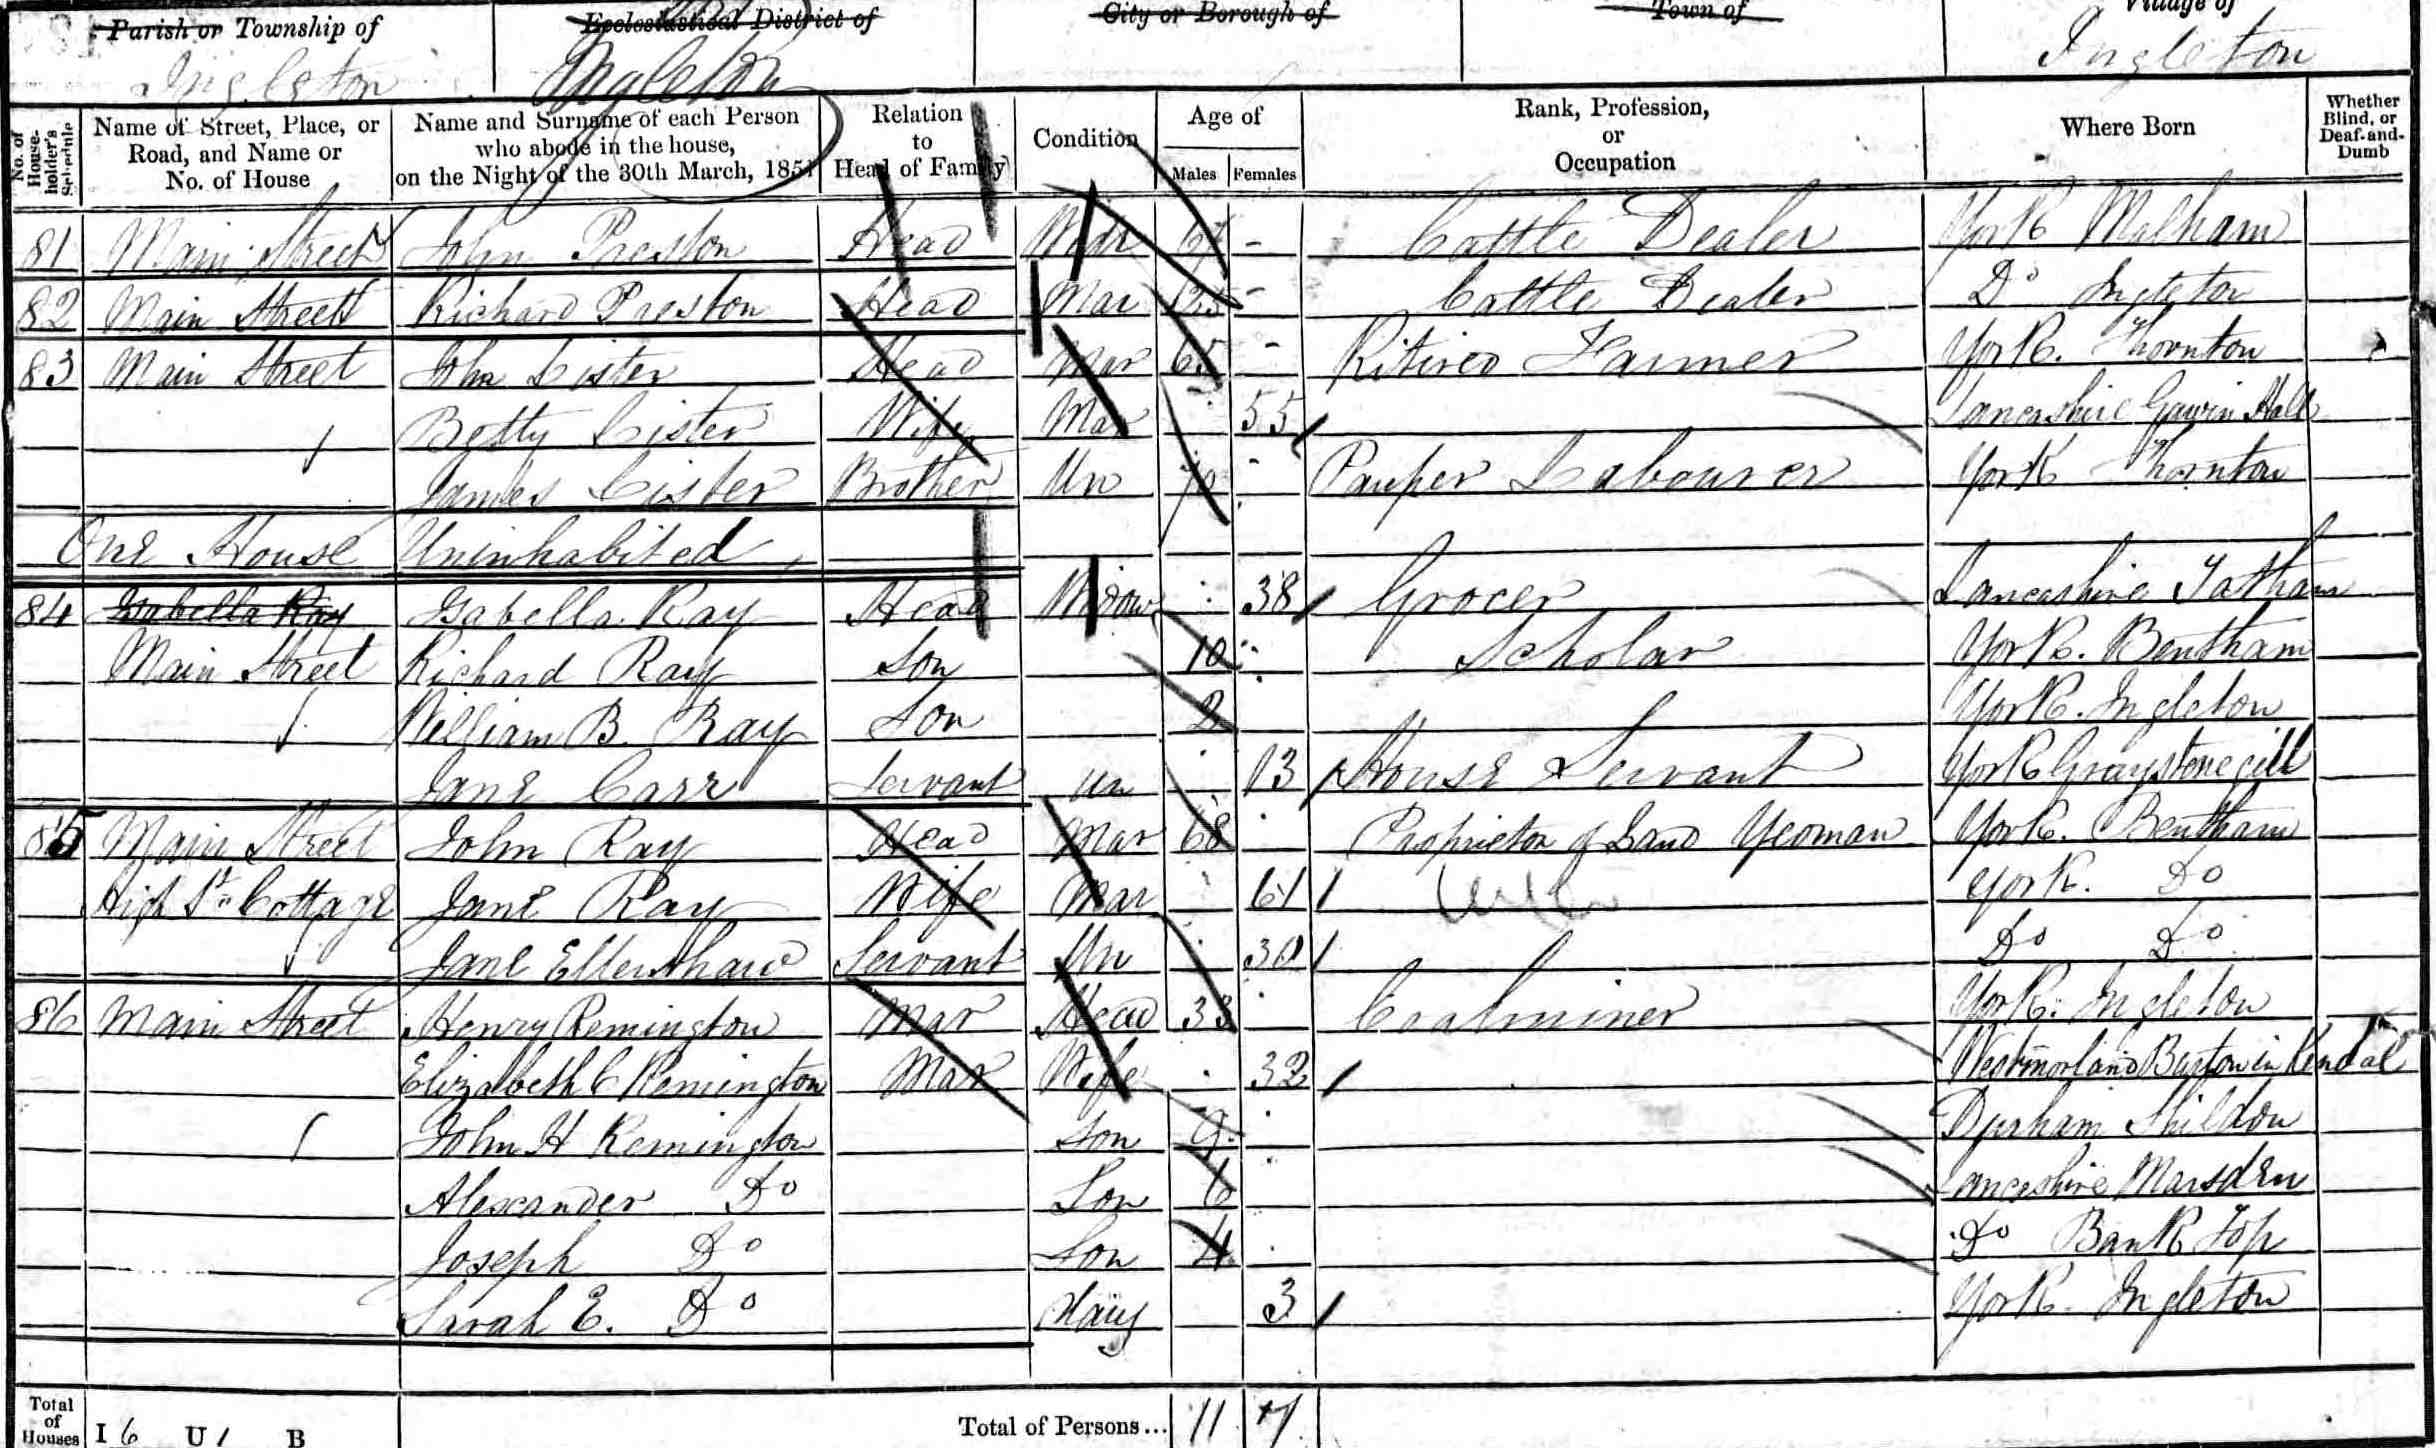 Parish or Township of Ecclesiastical District of City or Borough of Town of Village of
Ingleton Ingleton Ingleton
No. of House-holder's Schedule
Name of Street, Place, or Road, and Name or No. of House
Name and Surname of each Person who abode in the house, on the Night of the 30th March, 1851
Relation to Head of Family
Condition
Age of
Males Females
Rank, Profession, or Occupation
Where Born
Whether Blind, or Deaf-and-Dumb
81 Main Street John Preston Head - Cattle Dealer York Malham
82 Main Street Richard Preston Head Mar - Cattle Dealer Do Ingleton
83 Main Street John Lister Head Mar 65 - Ritired Farmer York. Thornton
Betty Lister Wife Mar 55 Lancashire Hall
James Lister Brother Un 70 - Pauper Labourer York Thornton
One House Uninhabited
84 Isabella Ray Isabella Ray Head Widow 38 Grocer Lancashire Tatham
Main Street Richard Ray Son 10 Scholar York. Bentham
William B. Ray Son 2 York. Ingleton
Jane Carr Servant Un 13 House Servant York Graystonegill
85 Main Street John Ray Head Mar 68 Proprietor of Land Yeoman York. Bentham
High St Cottage Jane Ray Wife Mar 61 York. Do
Jane Ellershaw Servant Un 30 Do Do
86 Main Street Henry Remington Mar Head 33 Coalminer York. Ingleton
Elizabeth C Remington Mar Wife 32 Westmorland Burton in Kendal
John H Remington Son 9 Durham Shildon
Alexander Do Son 6 Lancashire Marsden
Joseph Do Son 4 Do Bank Top
Sarah E. Do Daug 3 York. Ingleton
Total of Houses I 6 U 1 B Total of Persons... 11 7